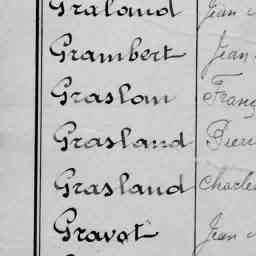 Graland Jean
Grambert Jean
Graslan Franç
Grasland Pierr
Grasland Charles
Gravot Jean